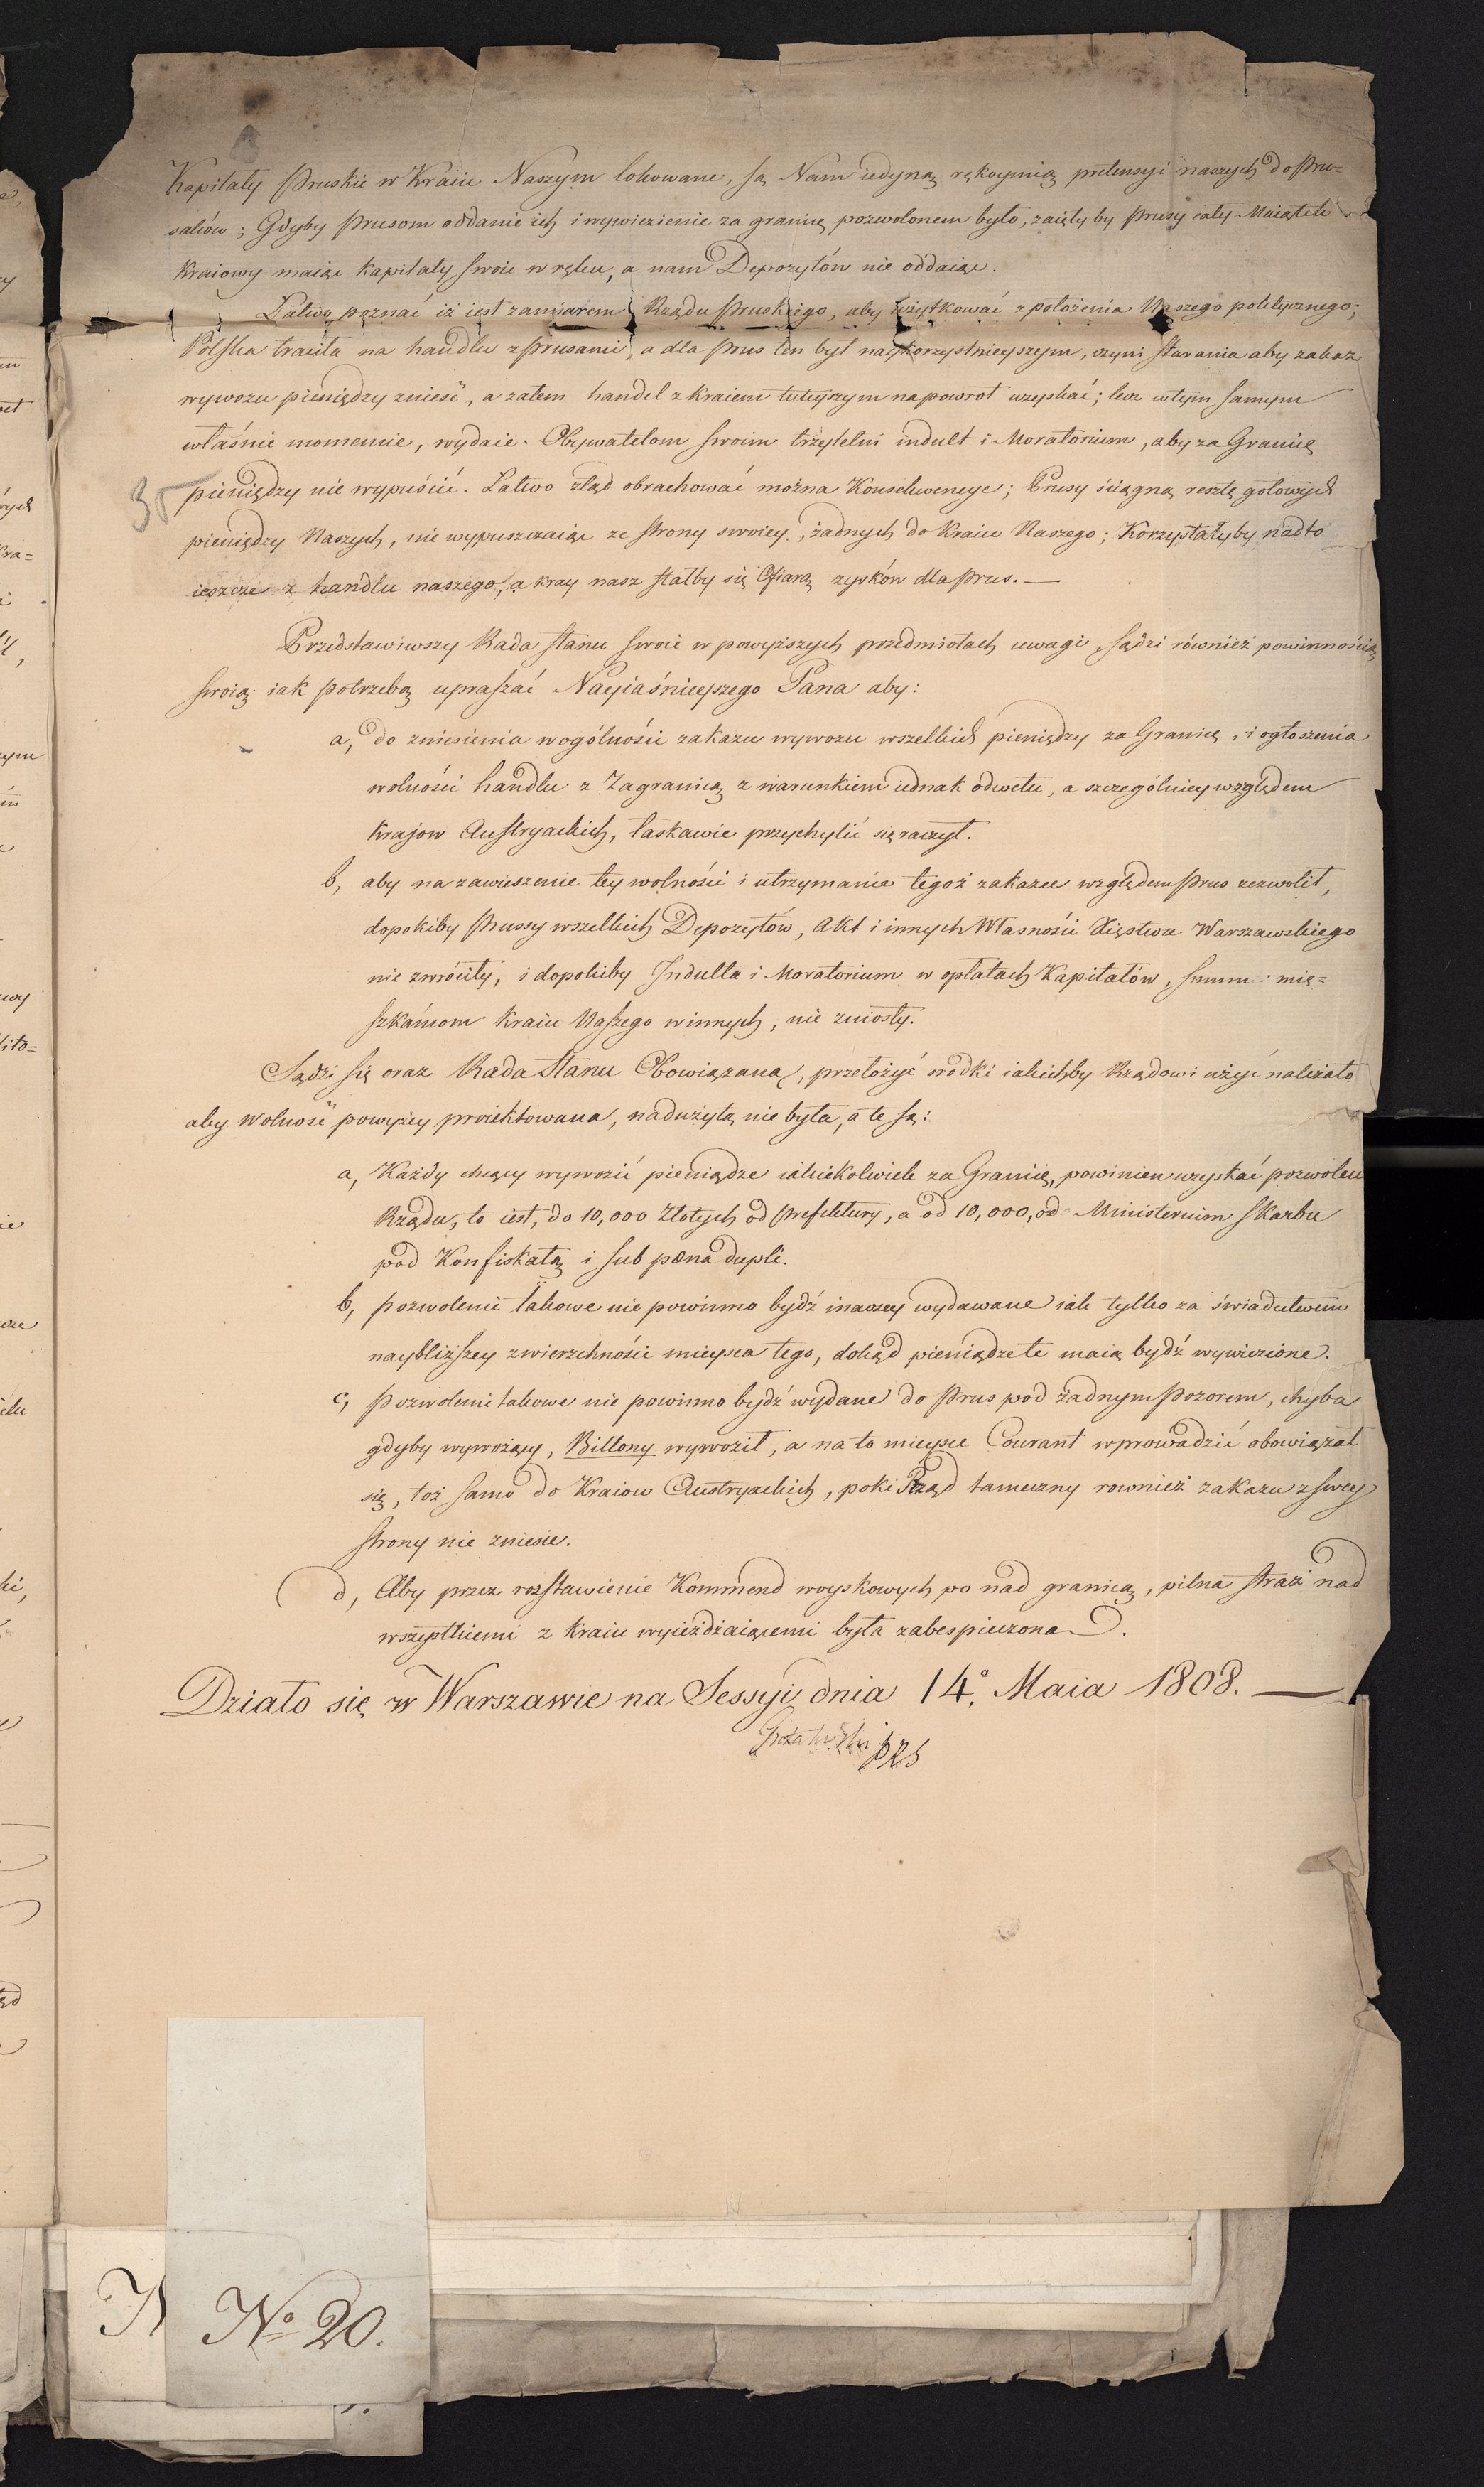 Kapitały Pruskie w Kraiu Naszym lokowane, są Nam iedyną rękoymią pretensyi naszych do Pru=
saków; Gdyby Prusom oddanie ich i wywiezienie za granicę pozwolonem było, zaięły by Prusy cały Maiątek
Kraiowy maiąc Kapitały swoie w ręku, a nam Depozytów nie oddaiąc.
Łatwo poznać iż iest zamiarem Rządu Pruskiego, aby użytkować z położenia Naszego politycznego;
Polska traciła na handlu z Prusami, a dla Prus ten był naykorzystnieyszym, czyni starania aby zakaz
wywozu pieniędzy znieść, a zatem handel z kraiem tuteyszym napowrot uzyskać; lecz w tym samym
właśnie momencie, wydaie Obywatelom swoim trzyletni indult i Moratorium, aby za Granicę
pieniędzy nie wypuścić. Łatwo ztąd obrachować można Konsekwencye; Prusy ściągną resztę gotowych
pieniędzy Naszych, nie wypuszczaiąc ze strony swoiey żadnych do Kraiu Naszego; Korzystałyby nadto
ieszcze z handlu naszego, a kray nasz stałby się Ofiarą zysków dla Prus. —
30
Przedstawiwszy Rada Stanu swoie w powyższych przedmiotach uwagi, sądzi również powinnością
swoią iak potrzebą upraszać Nayiaśnieyszego Pana aby:
a, do zniesienia wogólności zakazu wywozu wszelkich pieniędzy za Granicę, i ogłoszenia
wolności handlu z Zagranicą z warunkiem iednak odwetu, a szczególniey względem
Krajow Austryackich, łaskawie przychylić się raczył.
b, aby na zawieszenie tey wolności i utrzymanie tegoż zakazu względem Prus zezwolił,
dopokiby Prussy wszelkich Depozytów, Akt i innych Własności Xięstwa Warszawskiego
nie zwróciły, i dopokiby Indulta i Moratorium w opłatach Kapitałów, summ mię=
szkańcom Kraiu Naszego winnych, nie zniosły.
Sądzi się oraz Rada Stanu Obowiązaną, przełożyć srodki iakichby Rządowi użyć należało
aby Wolność powyżey proiektowana, nadużytą nie była, a te są:
a, Każdy chcący wywozić pieniądze iakiekolwiek za Granicę, powinien uzyskać pozwoleń
Rządu, to iest, do 10,000 Złotych od Prefektury, a od 10,000, od Ministerium Skarbu
pod Konfiskatą i sub pœna dupli.
b, pozwolenie takowe nie powinno bydź inaczey wydawane iak tylko za świadectwem
naybliższey zwierzchności mieysca tego, dokąd pieniądze te maią bydź wywiezione.
c, Pozwolenie takowe nie powinno bydź wydane do Prus pod żadnym pozorem, chyba
gdyby wywożący, Billony wywoził, a na to mieysce Courant wprowadzić obowiązał
się, toż samo do Kraiow Austryackich, poki Rząd tameczny rownież zakazu z swey
strony nie zniesie.
d, Aby przez rozstawienie Kommend woyskowych po nad granicą, pilna straż nad
wszystkiemi z kraiu wyieżdżaiącemi była zabespieczona.
Działo się w Warszawie na Sessyi dnia 14º Maia 1808. —
PRS
Nº 20.